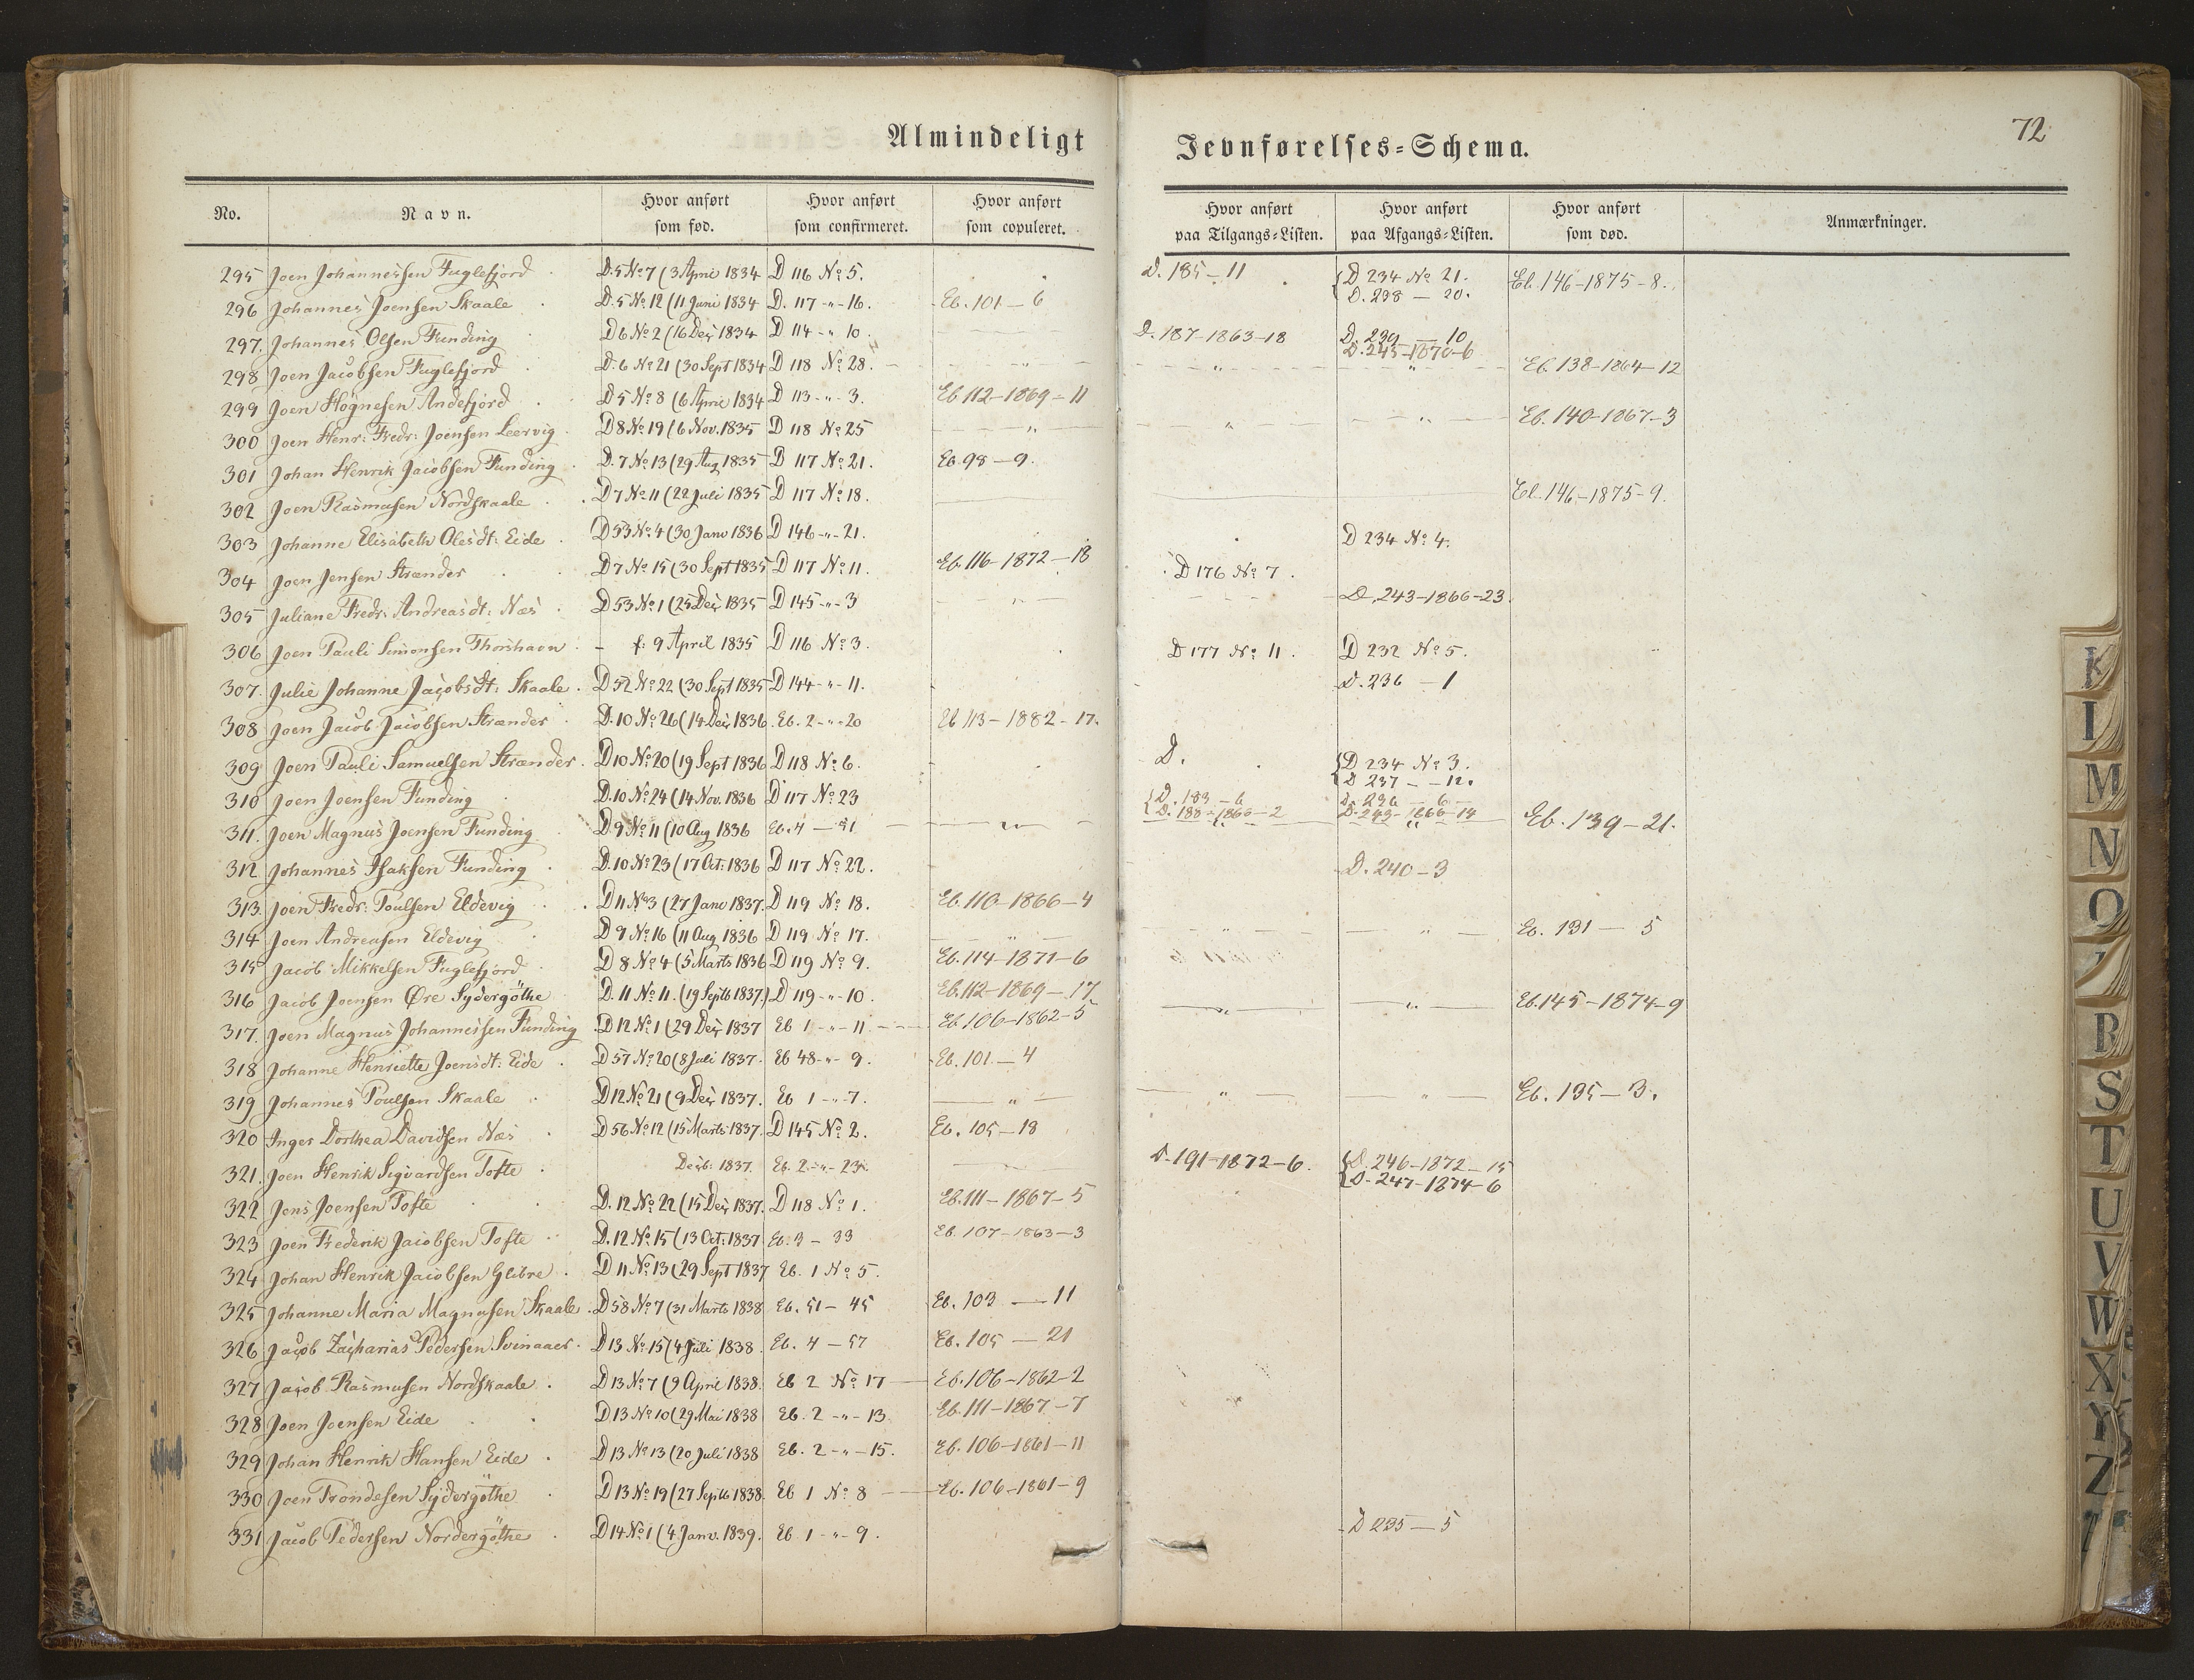 Almindeligt Jevnførelses=Schema.
72
No. Navn. Hvor anført som fød. Hvor anført som confirmeret. Hvor anført som copuleret. Hvor anført paa Tilgangs=Listen. Hvor anført paa Afgangs=Listen. Hvor anført som død. Anmærkninger.
295 Joen Johannessen Fuglefjord D.5 No 7 (3 April 1834 D 116 No 5. D. 185 — 11 {D 234 No 21. Eb. 146-1875-8.
296 Johannes Joensen Skaale D.5 No 12 (11 Juni 1834 D. 117 -"- 16. Eb. 101 — 6 D. 238 — 20.
297. Johannes Olsen Funding D 6 No 2 (16 Dec 1834 D 114 -"- 10. D. 187-1863-18 D. 239 — 10
D. 245-1870-6
298 Joen Jacobsen Fuglefjord D. 6 No 21 (30 Sept 1834 D 118 No 28. — " — — " — — " — Eb. 138-1864-12
299 Joen Høgnesen Andefjord D 5 No 8 (6 April 1834 D 113 -"- 3. Eb 112-1869-11
300 Joen Henr: Fredr: Joensen Leervig D 8 No 19 (6 Nov. 1835 D 118 No 25 — " — — " — — " — Eb. 140-1867-3
301 Johan Henrik Jacobsen Funding D. 7 No 13 (29 Aug 1835 D 117 No 21. Eb. 98 — 9.
302 Joen Rasmusen Nordskaale D 7 No 11 (22 Juli 1835 D 117 No 18. Eb. 146-1875-9.
303 Johanne Elisabeth Olesdt: Eide D 53 No 4 (30 Janv 1836 D 146 -"- 21. D 234 No 4.
304 Joen Jensen Strænder D 7 No 15 (30 Sept 1835 D 117 No 11. Eb. 116-1872-18 D 176 No 7.
305 Juliane Fredr: Andreasdt: Næs D 53 No 1 (25 Dec 1835 D 145 -"- 3 — " — D. 243-1866-23.
306 Joen Pauli Simonsen Thorshavn — f: 9 April 1835 D 116 No 3. D 177 No 11. D 232 No 5.
307. Julie Johanne Jacobsdt: Skaale. D 52 No 22 (30 Sept 1835 D 144 -"- 11. D. 236 — 1
308 Joen Jacob Jacobsen Strænder D. 10 No 26 (14 Dec 1836. Eb. 2 -"- 20 Eb 113-1882-17.
309 Joen Pauli Samuelsen Strænder. D 10 No 20 (19 Sept 1836 D 118 No 6. D. {D 234 No 3.
{D 237 — 12.
310 Joen Joensen Funding D. 10 No 24 (14 Nov. 1836 D 117 No 23 {D. 183 — 6 D. 236 — 6 —
{D. 188-1866-2 D. 243-1866-14
311. Joen Magnus Joensen Funding D 9 No 11 (10 Aug 1836 Eb. 4 — 51 — " — Eb. 139-21.
312 Johannes Isaksen Funding D. 10 No 23 (17 Oct: 1836 D 117 No 22. D. 240-3
313. Joen Fredr: Poulsen Eldevig D 11 No 3 (27 Janv 1837. D 119 No 18. Eb. 110-1866-4
314 Joen Andreasen Eldevig D 9 No 16 (11 Aug 1836 D 119 No 17. — " — — " — — " — Eb. 131 — 5
315 Jacob Mikkelsen Fuglefjord D 8 No 4 (5 Marts 1836 D 119 No 9. Eb. 114-1871-6
316 Jacob Joensen Øre Sydergöthe D. 11 No 11. (19 Septb 1837.) D 119 -"- 10. Eb. 112-1869-17 — " — — " — Eb. 145-1874-9
317. Joen Magnus Johannessen Funding D 12 No 1 (29 Dec 1837 Eb 1 -"- 11 Eb. 106-1862-5
318 Johanne Henriette Joensdt: Eide D 57 No 20 (8 Juli 1837. Eb 48 -"- 9. Eb. 101 — 4
319 Johannes Poulsen Skaale D 12 No 21 (9 Dec 1837. Eb 1 -"- 7. — " — — " — — " — Eb. 135 — 3.
320 Inger Dorthea Davidsen Næs D 56 No 12 (15 Marts 1837. D 145 No 2. Eb. 105 — 18
321. Joen Henrik Sigvardsen Tofte Decb: 1837. Eb. 2 -"- 23. D. 191-1872-6. {D. 246-1872-15
{D. 247-1874-6
322 Jens Joensen Tofte D. 12 No 22 (15 Dec 1837. D 118 No 1. Eb. 111-1867-5
323 Joen Frederik Jacobsen Tofte D. 12 No 15 (13 Oct: 1837 Eb. 3 — 33 Eb. 107-1863-3
324 Johan Henrik Jacobsen Glibre. D 11 No 13 (29 Sept 1837 Eb. 1 No 5.
325 Johanne Maria Magnusen Skaale. D 58 No 7 (31 Marts 1838 Eb. 51 — 45 Eb. 103 — 11
326 Jacob Zacharias Pedersen Svinaaer. D 13 No 15 (4 Juli 1838. Eb. 4 — 57 Eb. 105 — 21
327 Jacob Rasmusen Nordskaale. D 13 No 7 (9 April 1838. Eb 2 No 17 Eb. 106-1862-2
328 Joen Joensen Eide D 13 No 10 (29 Mai 1838 Eb. 2 -"- 13 Eb. 111-1867-7
329 Johan Henrik Hansen Eide D 13 No 13 (20 Juli 1838 Eb. 2 -"- 15. Eb. 106-1861-11
330 Joen Trondesen Sydergöthe D 13 No 19 (27 Septb 1838. Eb 1 No 8 Eb. 106-1861-9
331 Jacob Pedersen Nordergöthe D 14 No 1 (4 Janv. 1839. Eb 1 -"- 9. D 235 — 5
K
L
M
N
O
R
S
T
U
V
W
X
Y
Z